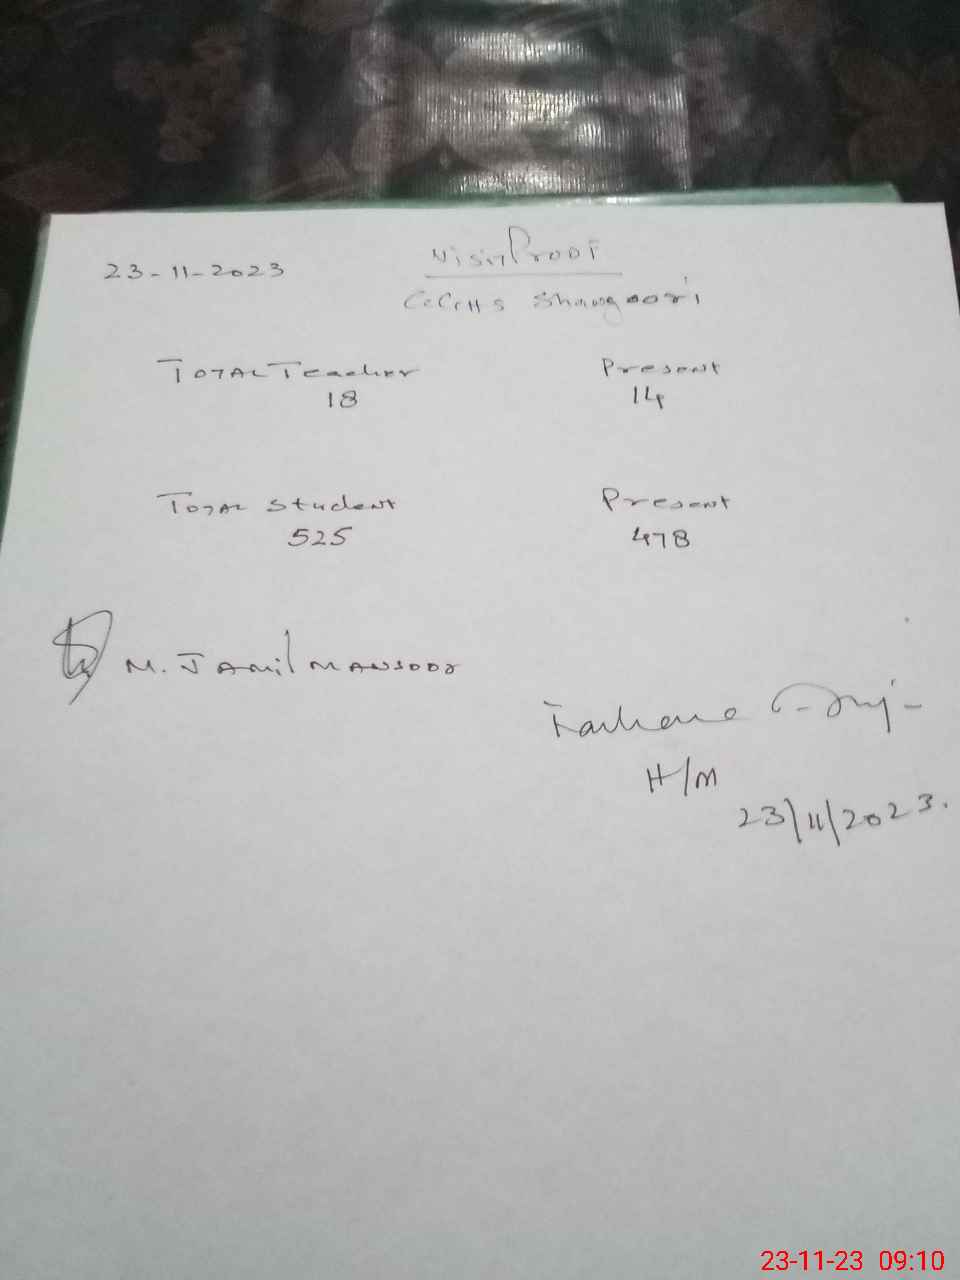 23-11-2023
Visit Proof
GGHS Shangoori
TOTAL Teacher Present
18 14
TOTAL Student Present
525 478
M. JAmil MANSOOr
Farhana
H/M
23/11/2023.
23-11-23 09:10